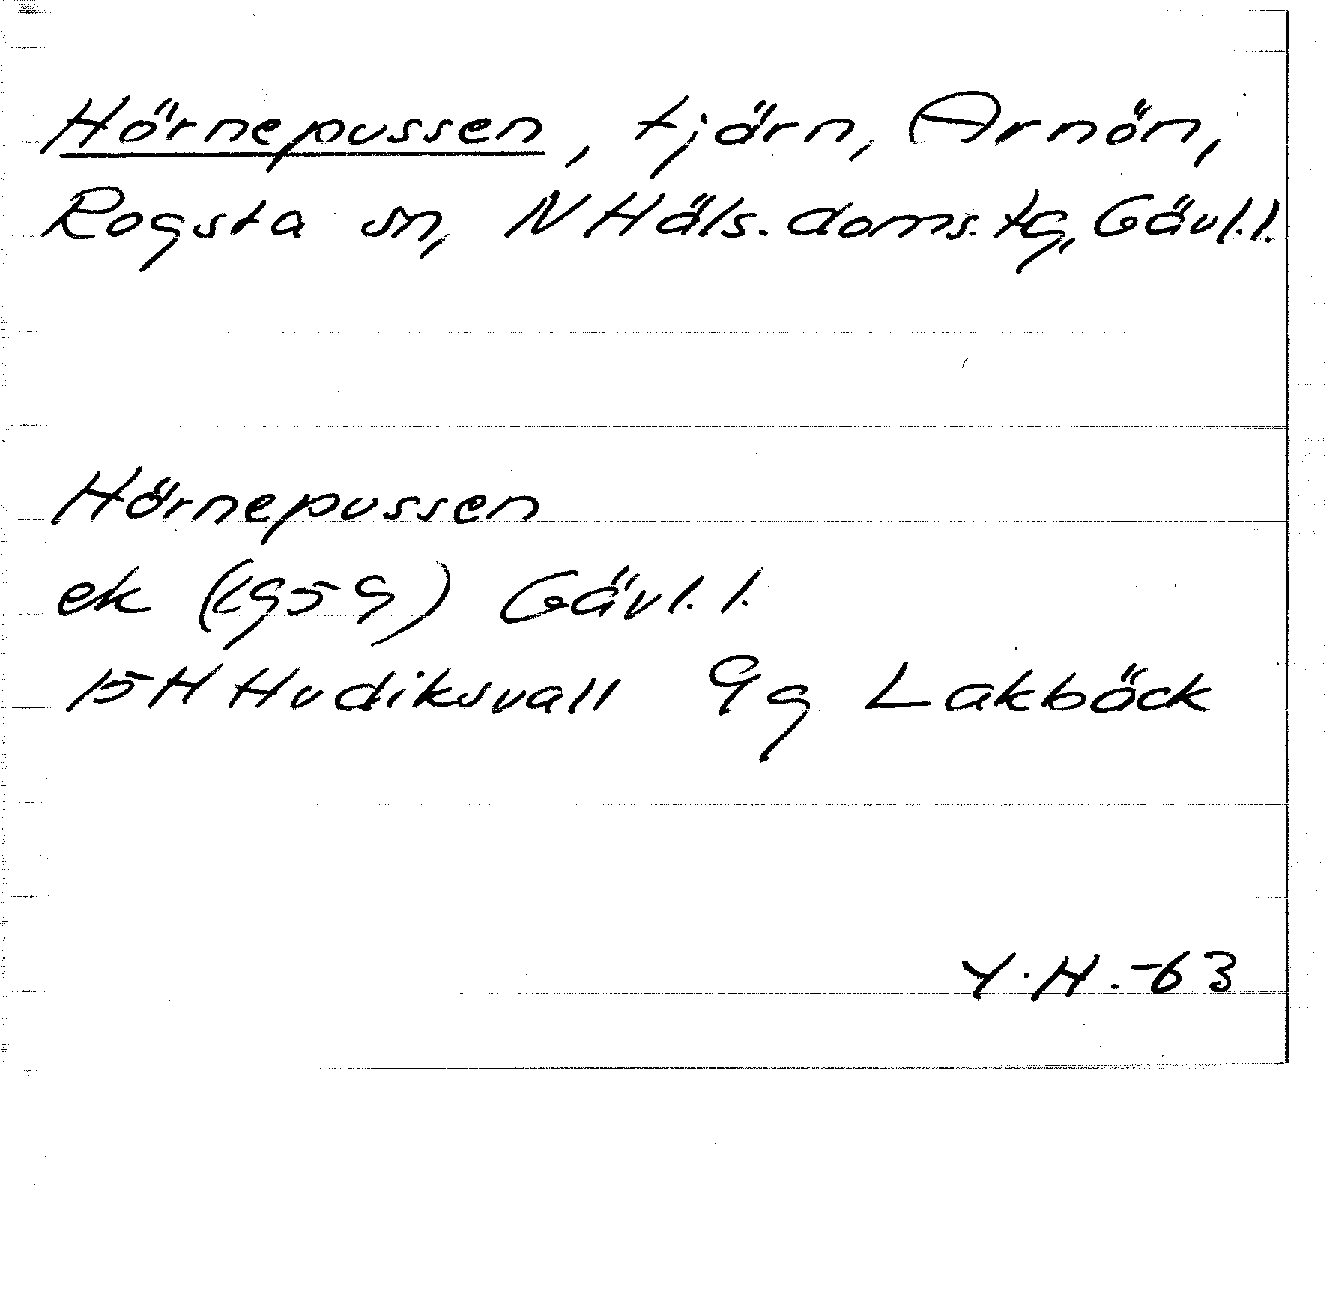 Hörnepussen, tjärn, Arnön,
Rogsta sn, N Häls. doms. tg, Gävl. l.
Hörnepussen
ek (1959) Gävl. l.
15H Hudiksvall 9g Lakböck
Y. H. -63